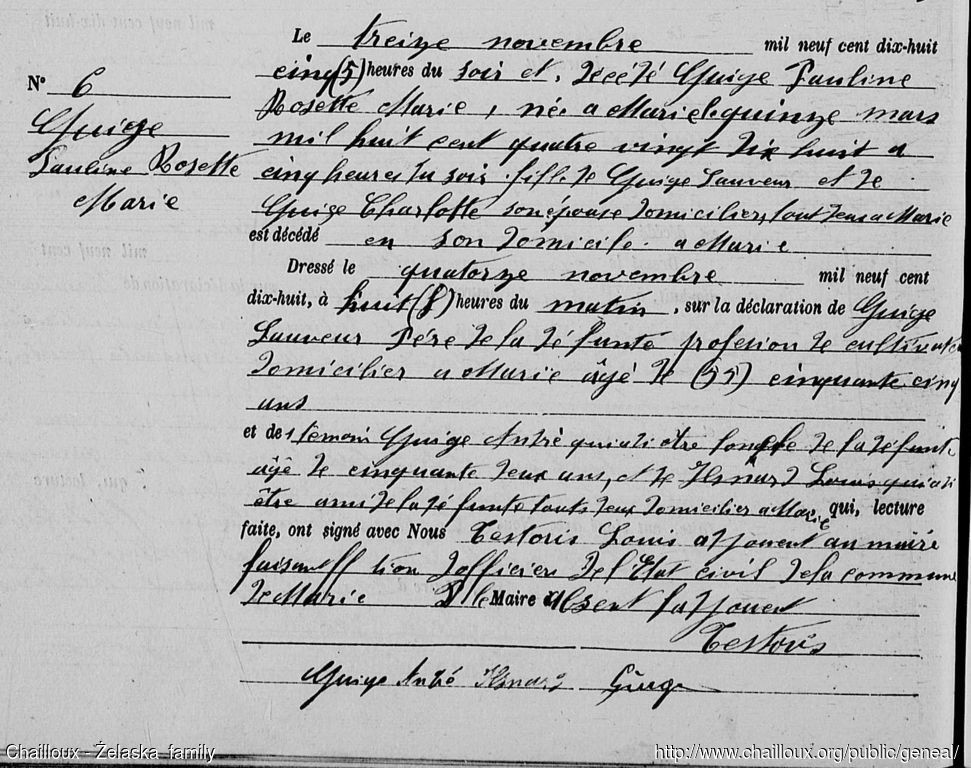 Le treize novembre mil neuf cent dix-huit
N° 6
cinq (5) heures du soir et, décédé Guige Pauline
Rosette Marie, née a Marie le quinze mars
Guige
mil huit cent quatre vingt dix huit a
Pauline Rosette
cinq heures du soir fille de Guige Sauveur et de
Marie
Guige Charlotte son épouse domiciliers, tout deux a Marie
est décédé en son domicile a Marie
Dressé le quatorze novembre mil neuf cent
dix-huit, à huit (8) heures du matin, sur la déclaration de Guige
Sauveur Père de la défunte profesion de cultivateur
domicilier a Marie âgé de (55) cinquante cinq
ans
et des témoin Guige André qui a di être l'oncle de la défunte
âgé de cinquante deux ans, et de Isnard Louis qui a di
être ami de la défunte touts deux domicilier a Marie qui, lecture
faite, ont signé avec Nous Testoris Louis adjouent au maire
faisant ff tion d'officier de l'Etat civil de la commune
de Marie P le Maire absent l'adjouent
Testoris
Guige André Isnard Guige
Chailloux - Želaska family
http://www.chailloux.org/public/geneal/